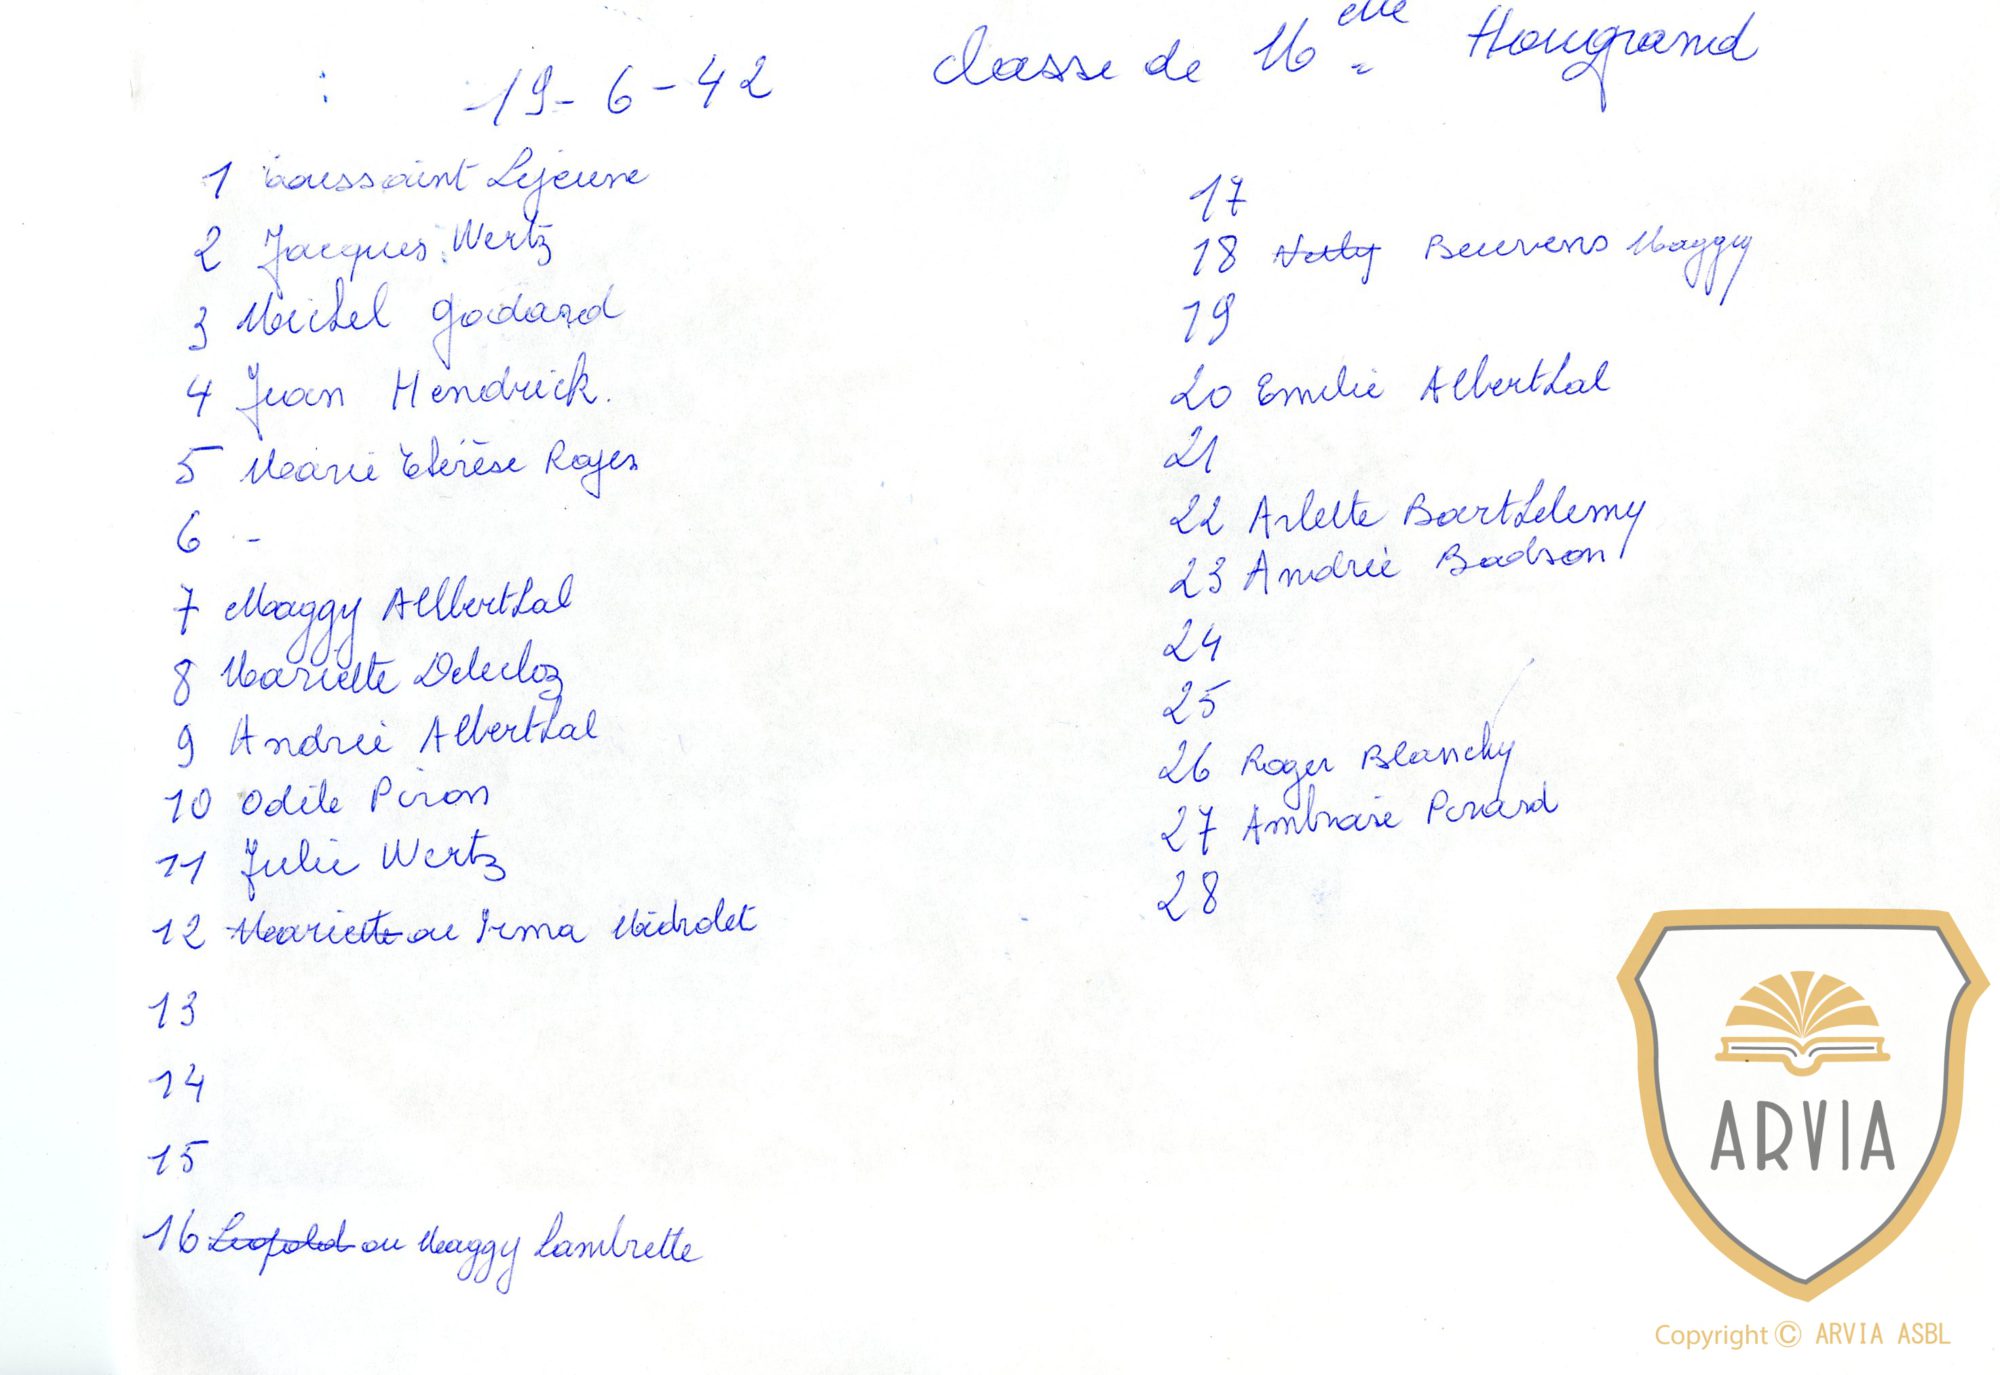 19-6-42 Classe de Melle Hougrand
1 Toussaint Lejeune
2 Jacques Wertz
3 Michel Godard
4 Jean Hendrick.
5 Marie Thérèse Rojes
6 -
7 Maggy Alberthal
8 Mariette Delecloz
9 Andrée Alberthal
10 Odile Piron
11 Julie Wertz
12 Mariette ou Irma Midrolet
13
14
15
16 Leopold ou Maggy Lambrette
17
18 Nelly Beuvens Maggy
19
20 Emilie Alberthal
21
22 Arlette Barthelemy
23 Andrée Badson
24
25
26 Roger Blanchy
27 Ambroise Pirard
28
ARVIA
Copyright © ARVIA ASBL